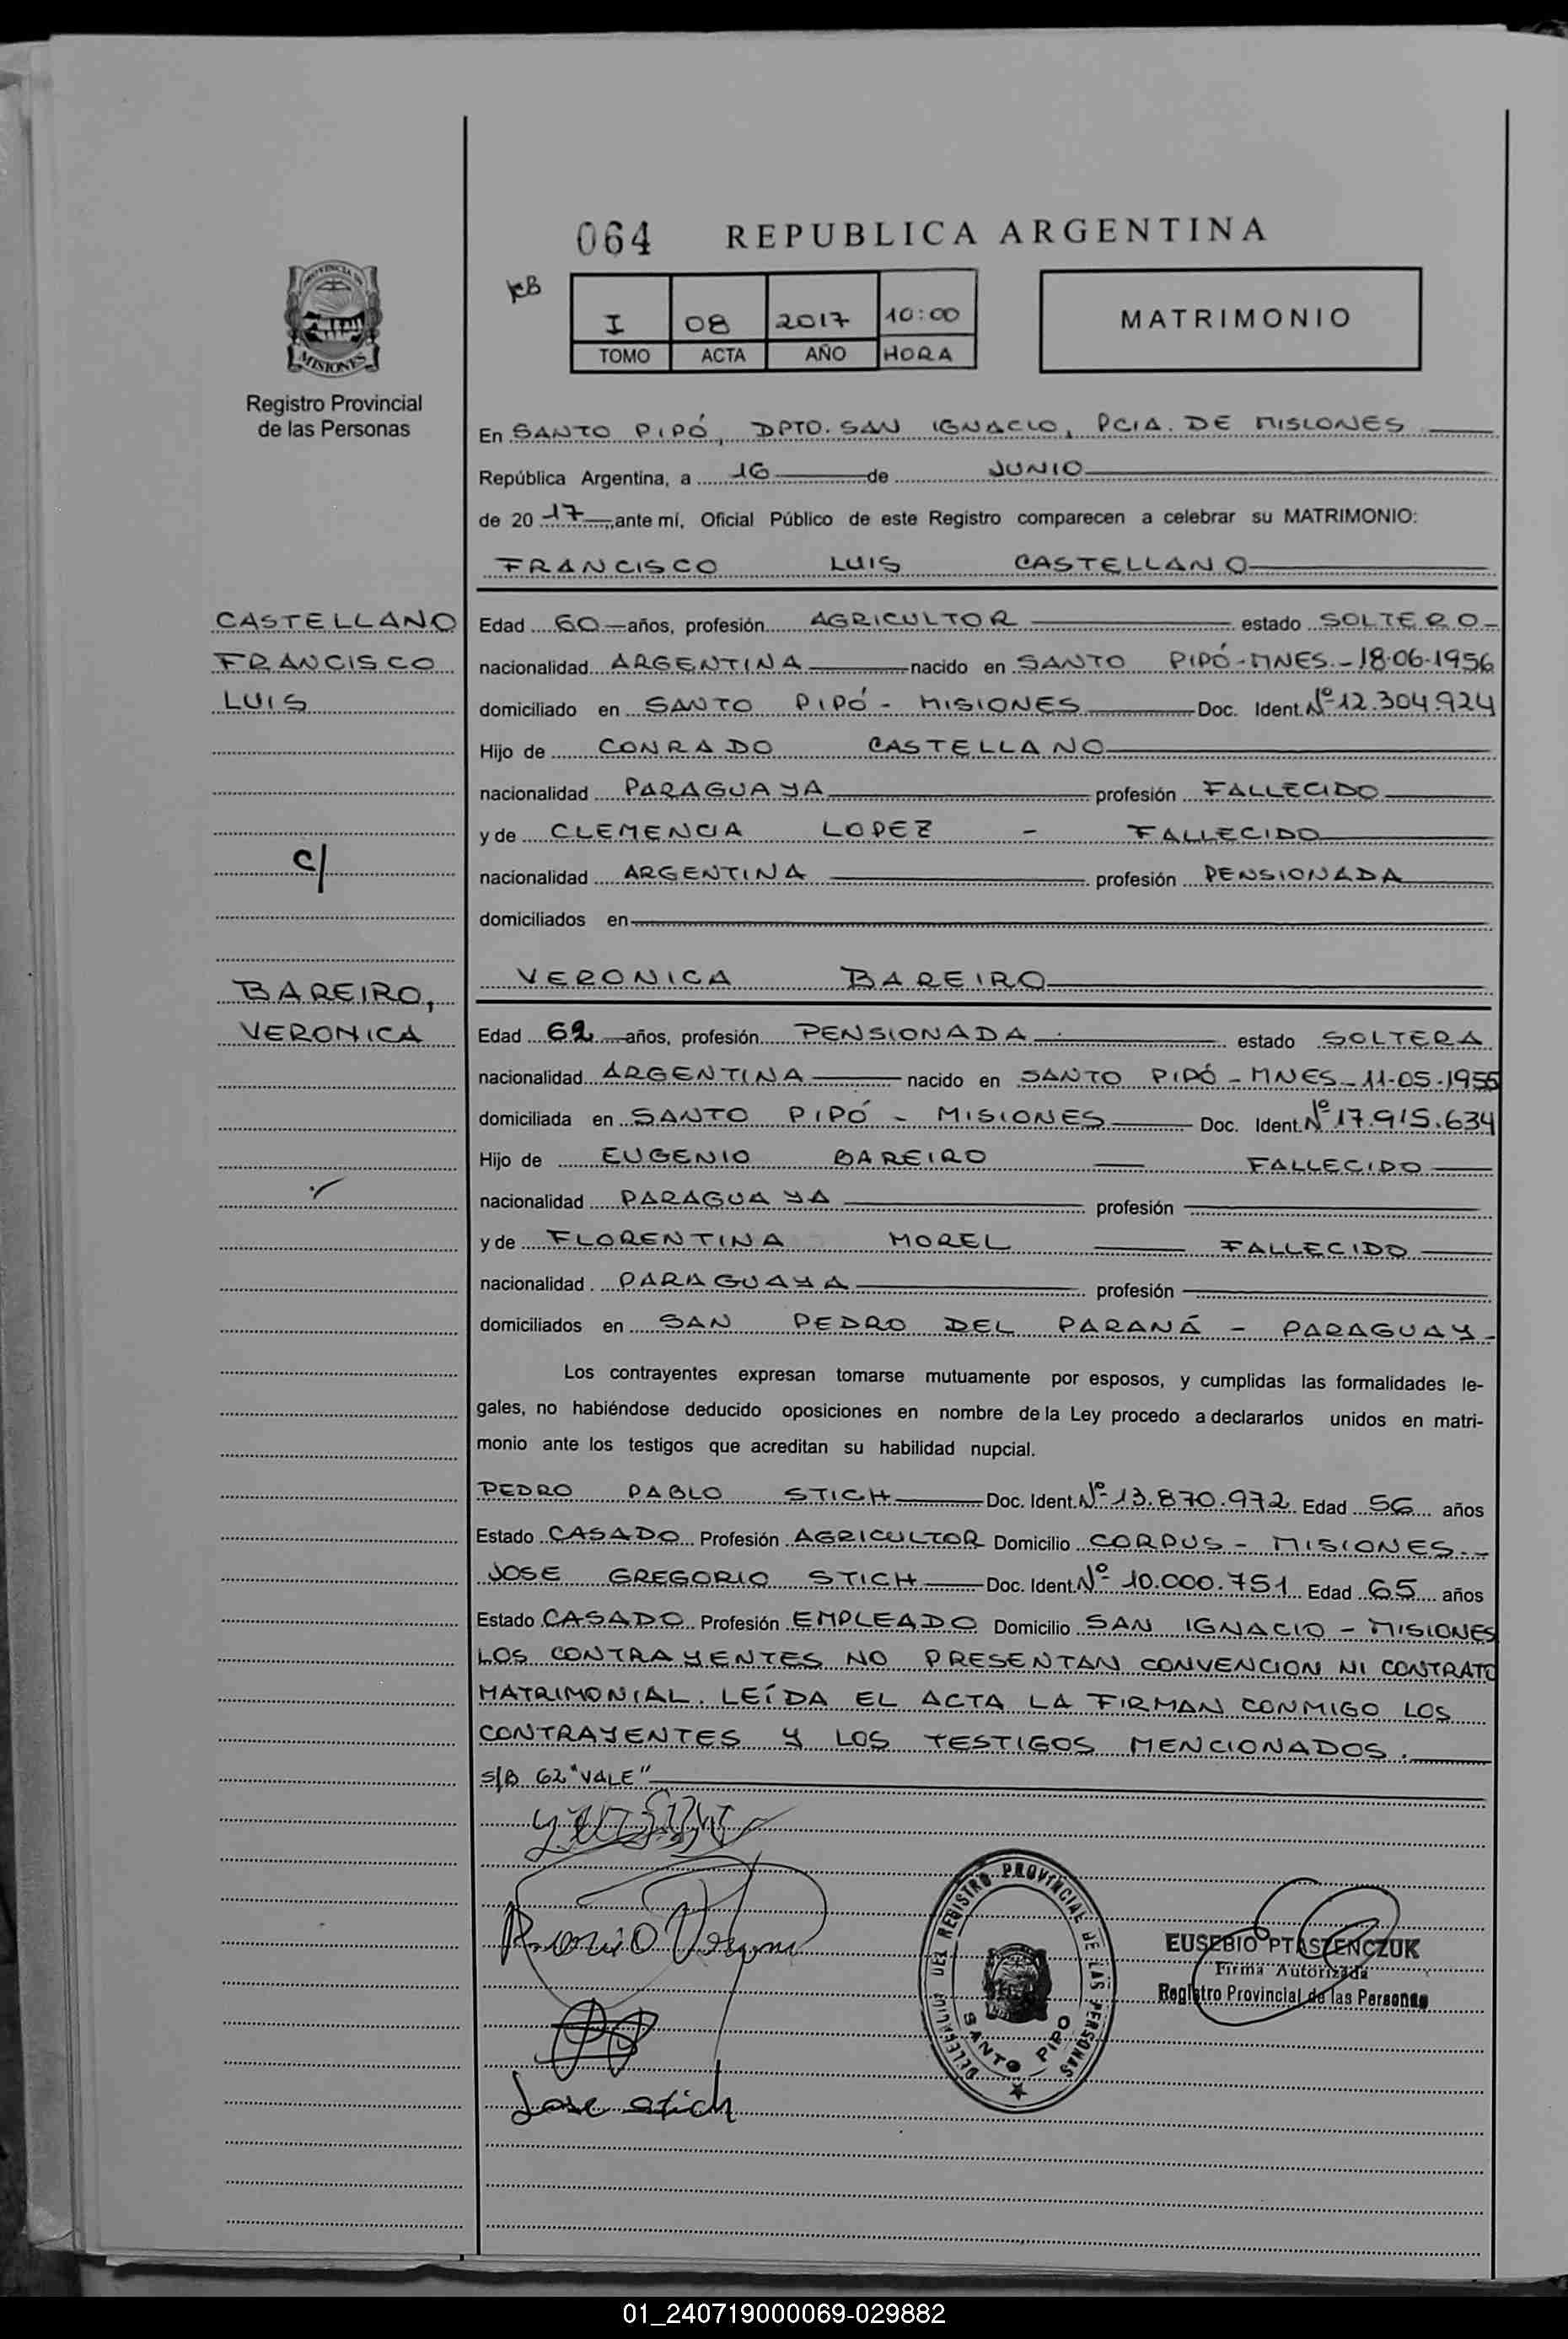 064 REPUBLICA ARGENTINA
PROVINCIA DE
MISIONES
Registro Provincial
de las Personas
KB
I 08 2017 10:00
TOMO ACTA AÑO HORA
MATRIMONIO
En SANTO PIPÓ, DPTO. SAN IGNACIO, PCIA. DE MISIONES
República Argentina, a 16 de JUNIO
de 20 17, ante mí, Oficial Público de este Registro comparecen a celebrar su MATRIMONIO:
FRANCISCO LUIS CASTELLANO
CASTELLANO
FRANCISCO
LUIS
Edad 60 años, profesión AGRICULTOR estado SOLTERO
nacionalidad ARGENTINA nacido en SANTO PIPÓ-MNES.-18-06-1956
domiciliado en SANTO PIPÓ - MISIONES Doc. Ident. Nº 12.304.924
Hijo de CONRADO CASTELLANO
nacionalidad PARAGUAYA profesión FALLECIDO
y de CLEMENCIA LOPEZ - FALLECIDO
nacionalidad ARGENTINA profesión PENSIONADA
domiciliados en
c/
VERONICA BAREIRO
BAREIRO,
VERONICA
Edad 62 años, profesión PENSIONADA estado SOLTERA
nacionalidad ARGENTINA nacido en SANTO PIPÓ - MNES - 11-05-1955
domiciliada en SANTO PIPÓ - MISIONES Doc. Ident. Nº 17.915.634
Hijo de EUGENIO BAREIRO FALLECIDO
nacionalidad PARAGUAYA profesión
y de FLORENTINA MOREL FALLECIDO
nacionalidad PARAGUAYA profesión
domiciliados en SAN PEDRO DEL PARANÁ - PARAGUAY-
Los contrayentes expresan tomarse mutuamente por esposos, y cumplidas las formalidades le-
gales, no habiéndose deducido oposiciones en nombre de la Ley procedo a declararlos unidos en matri-
monio ante los testigos que acreditan su habilidad nupcial.
PEDRO PABLO STICH Doc. Ident. Nº 13.870.972 Edad 56 años
Estado CASADO Profesión AGRICULTOR Domicilio CORPUS - MISIONES.-
JOSE GREGORIO STICH Doc. Ident. Nº 10.000.751 Edad 65 años
Estado CASADO Profesión EMPLEADO Domicilio SAN IGNACIO - MISIONES
LOS CONTRAYENTES NO PRESENTAN CONVENCION NI CONTRATO
MATRIMONIAL. LEÍDA EL ACTA LA FIRMAN CONMIGO LOS
CONTRAYENTES Y LOS TESTIGOS MENCIONADOS.
S/B 62 "VALE"
DELEGACION DEL REGISTRO PROVINCIAL DE LAS PERSONAS
SANTO PIPO
EUSEBIO PTASZENCZUK
Firma Autorizada
Registro Provincial de las Personas
Jose stich
01_240719000069-029882